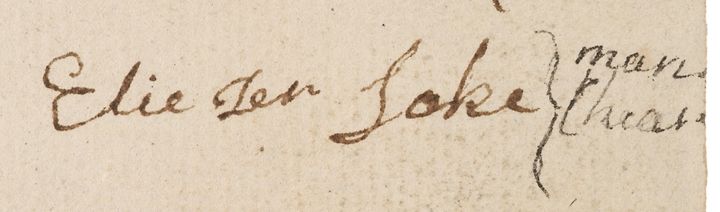 Eliezer Joke } man